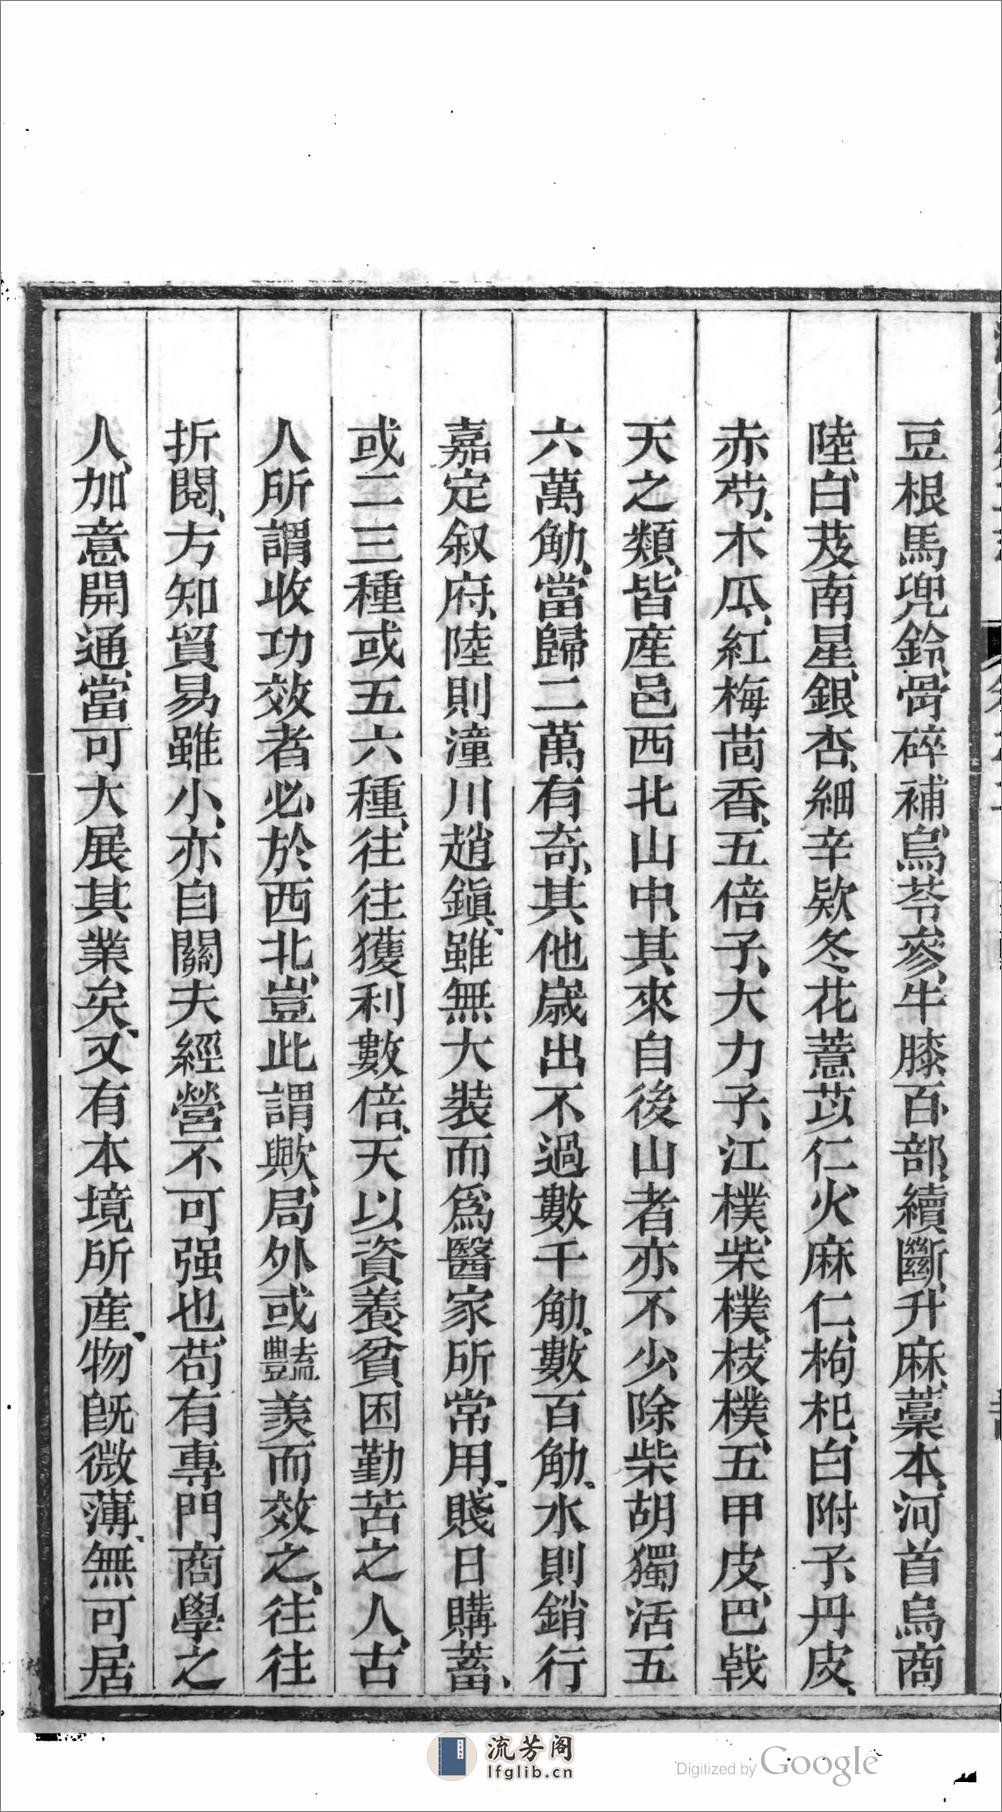 豆根馬兜鈴、骨碎補、烏苓參、牛膝百部、續斷、升麻、藁本、河首烏商
陸、白芨南星、銀杏、細辛欵冬、花薏苡仁、火麻仁、枸杞、白附子丹皮、
赤芍、木瓜、紅梅茴香、五倍子、大力子、江樸、柴樸、枝樸、五甲皮、巴戟
天之類、皆産邑西北山中、其來自後山者亦不少、除柴胡獨活五
六萬觔、當歸二萬有奇、其他歲出不過數千觔、數百觔、水則銷行
嘉定叙府、陸則潼川趙鎭、雖無大裝而爲醫家所常用、賤日購蓄、
或二三種或五六種、往往獲利數倍、天以資養貧困勤苦之人、古
人所謂收功效者必於西北、豈此謂歟、局外或豔羡而效之、往往
折閱、方知貿易雖小、亦自關夫經營不可强也、苟有專門商學之
人、加意開通、當可大展其業矣、又有本境所産、物旣微薄、無可居
流芳阁
lfglib.cn
Digitized by Google